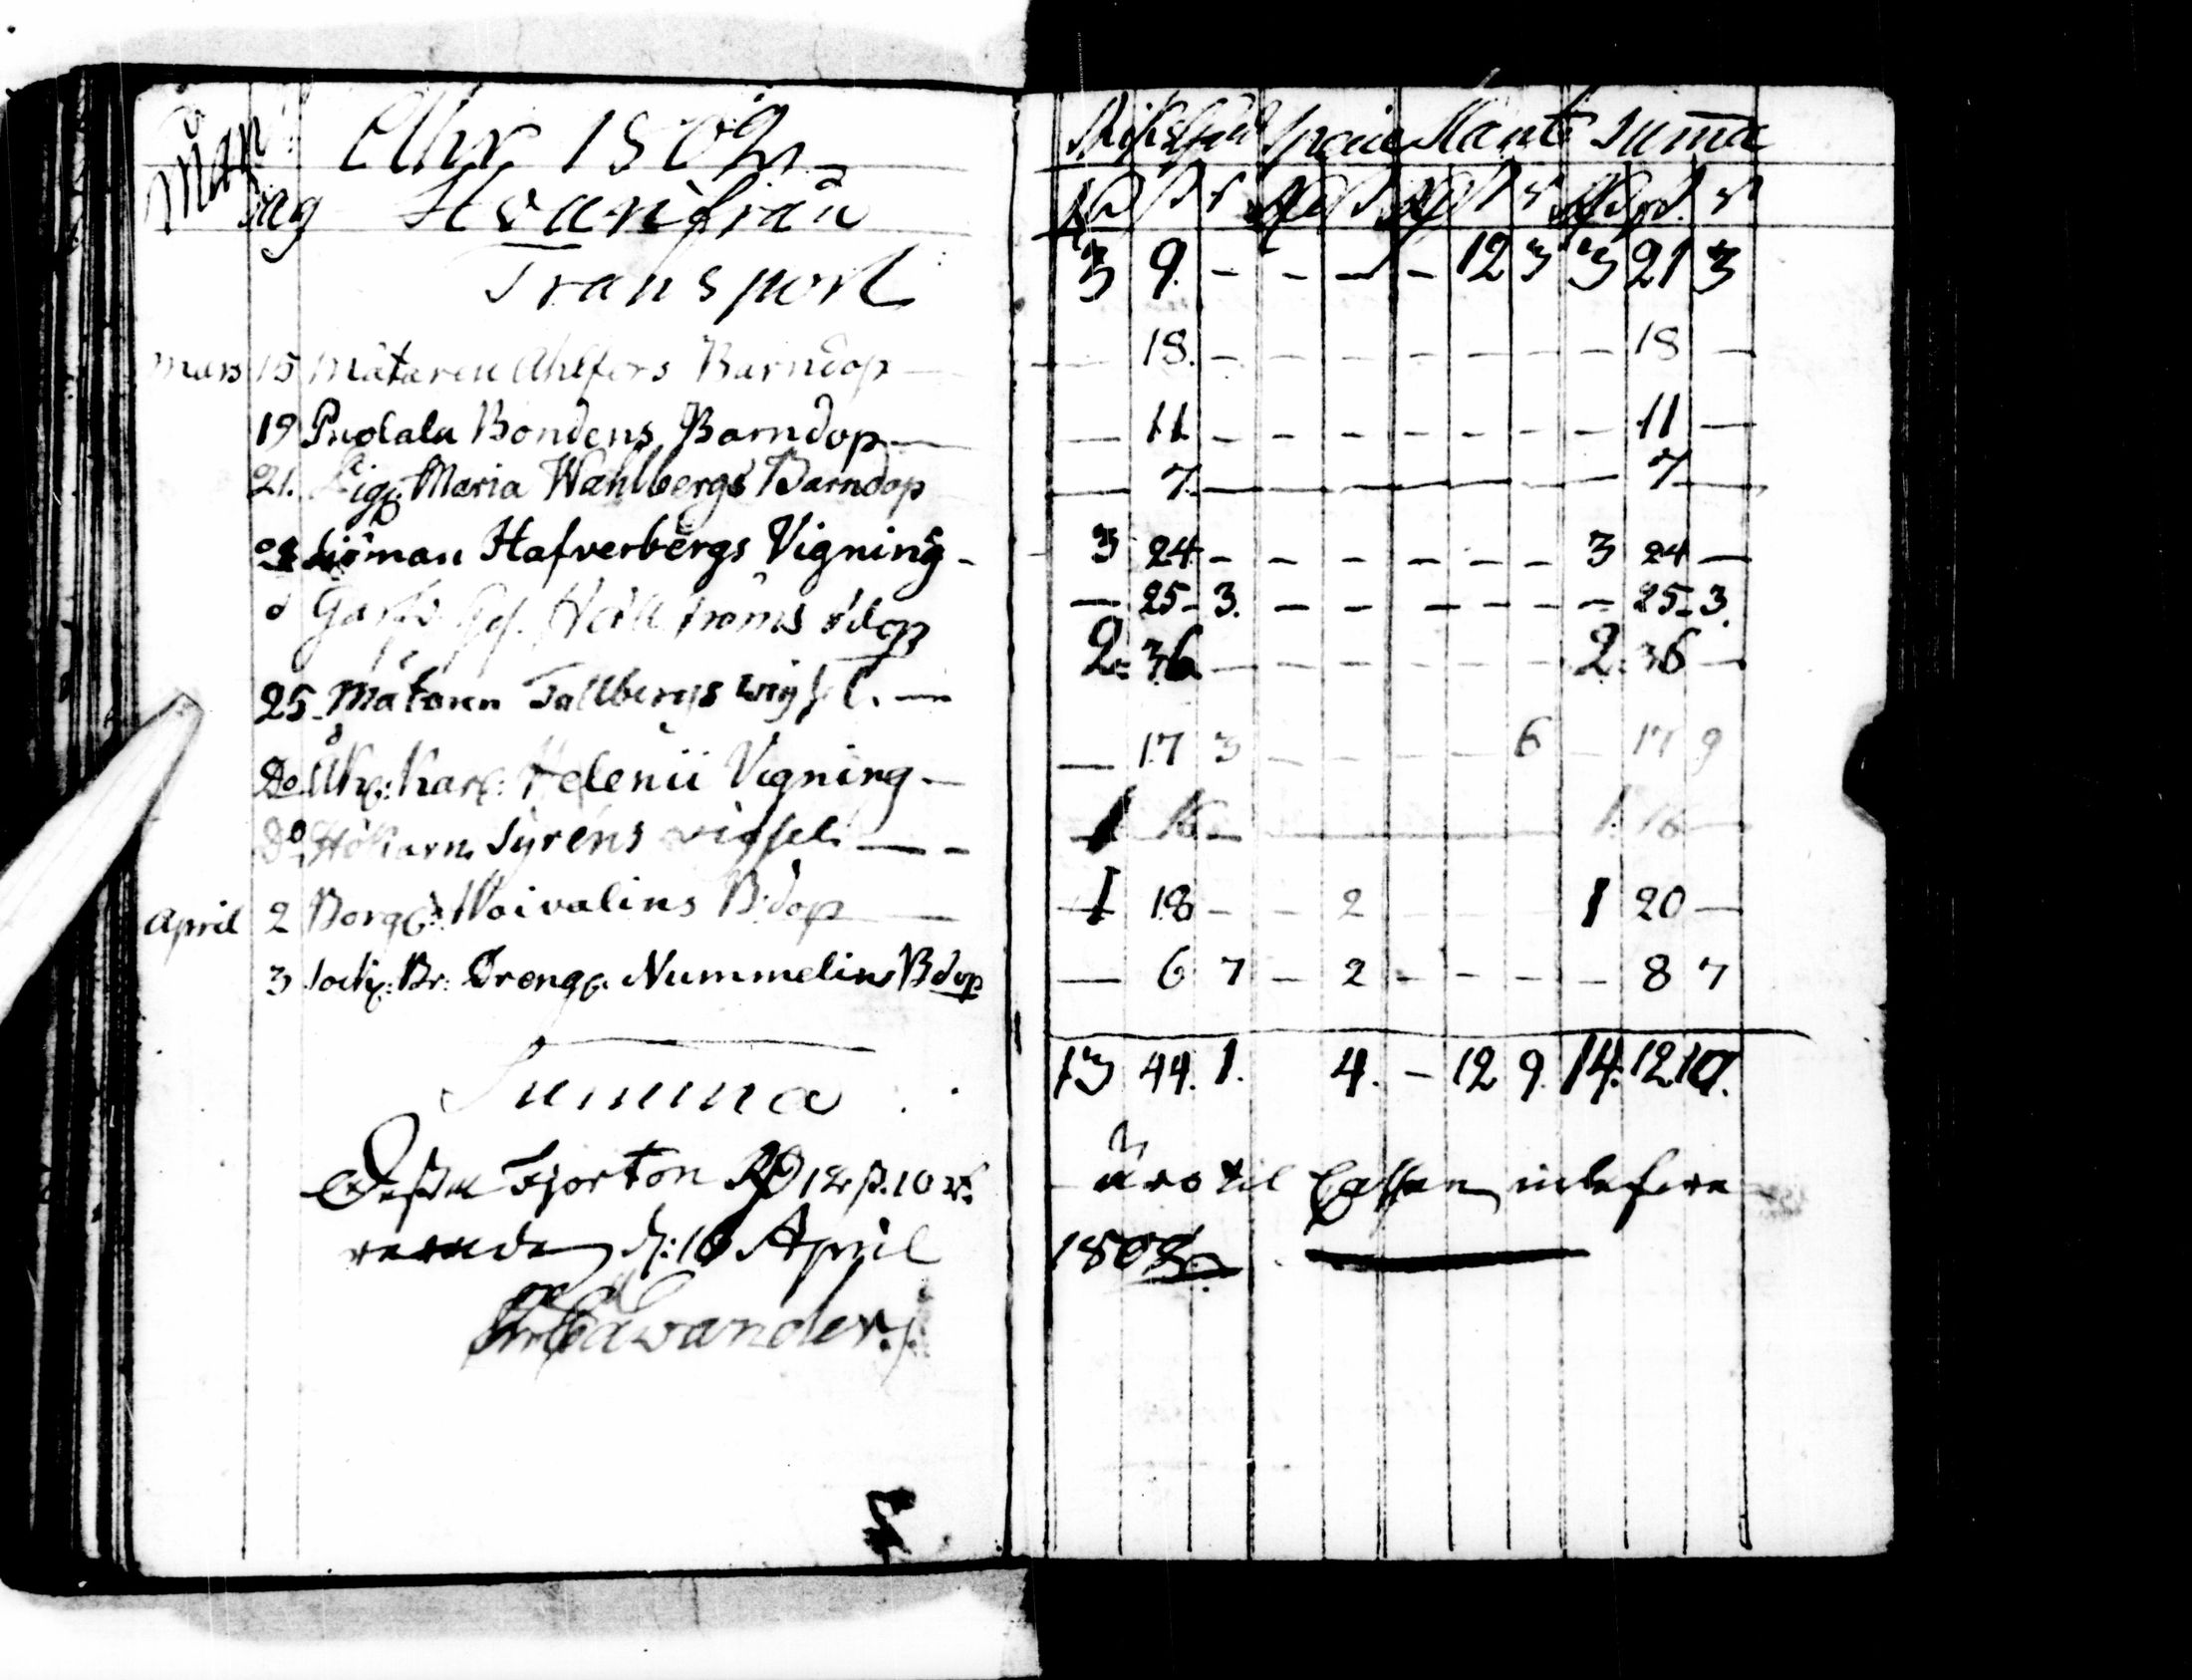 Mån: Åhr 1802 Riksgäld Specie Slantr Suma
dag Hvarifrån Rd ß r Rd ß Rd ß r Rd ß r
Transport 3 9. - - - - 12 3 3 21 3
Mars 15 Mätaren Ahlfors Barndop — — 18. - - - - - - - 18 —
19 Puolala Bondens Barndop — — 11 - - - - - - - 11 —
21. Pig: Maria Wahlbergs Barndop — 7. — 7 —
Sjöman Hafverbergs Vigning - 3 24 - - - - - - 3 24 —
d Hällströms bdop — 25 - 3. - - - - - - 25 - 3.
25 Mätaren Tallbergs wigsel. — 2: 36 — - - - - - 2: 36 —
Do Helenii Vigning — — 17 3 - - - - 6 - 17 9
Do Hökarn Syréns vigsel — - 1 16 - 1. 16 —
April 2 Borg: Woivalins B:dop — 1 18 - - 2 1 20 —
3 Sock: Br: Dreng: Nummelins Bdop — 6 7 - 2 - - - - - 8 7
Summa 13 44. 1. 4. - 12 9. 14. 12 10.
Dessa Fjorton Rd 12 ß. 10 r. äro til Cassan inlefve
rerade d: 16 April 1802.
Cawander.